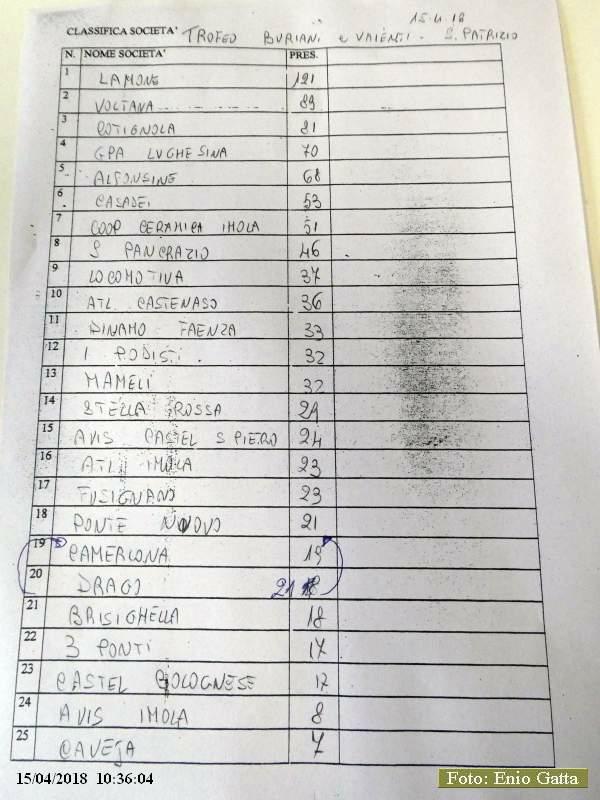 15.4.18
CLASSIFICA SOCIETA' TROFEO BURIANI e VALENTI - S. PATRIZIO
N. NOME SOCIETA' PRES.
1 LAMONE 121
2 VOLTANA 89
3 COTIGNOLA 81
4 GPA LUGHESINA 70
5 ALFONSINE 68
6 CASADEI 53
7 COOP CERAMICA IMOLA 51
8 S PANCRAZIO 46
9 LOCOMOTIVA 37
10 ATL CASTENASO 36
11 DINAMO FAENZA 33
12 I PODISTI 32
13 MAMELI 32
14 STELLA ROSSA 29
15 AVIS CASTEL S PIETRO 24
16 ATL IMOLA 23
17 FUSIGNANO 23
18 PONTE NUOVO 21
19 CAMERLONA 19
20 DRAGO 21
21 BRISIGHELLA 18
22 3 PONTI 17
23 CASTEL BOLOGNESE 12
24 AVIS IMOLA 8
25 CAVEJA 7
15/04/2018 10:36:04
Foto: Enio Gatta